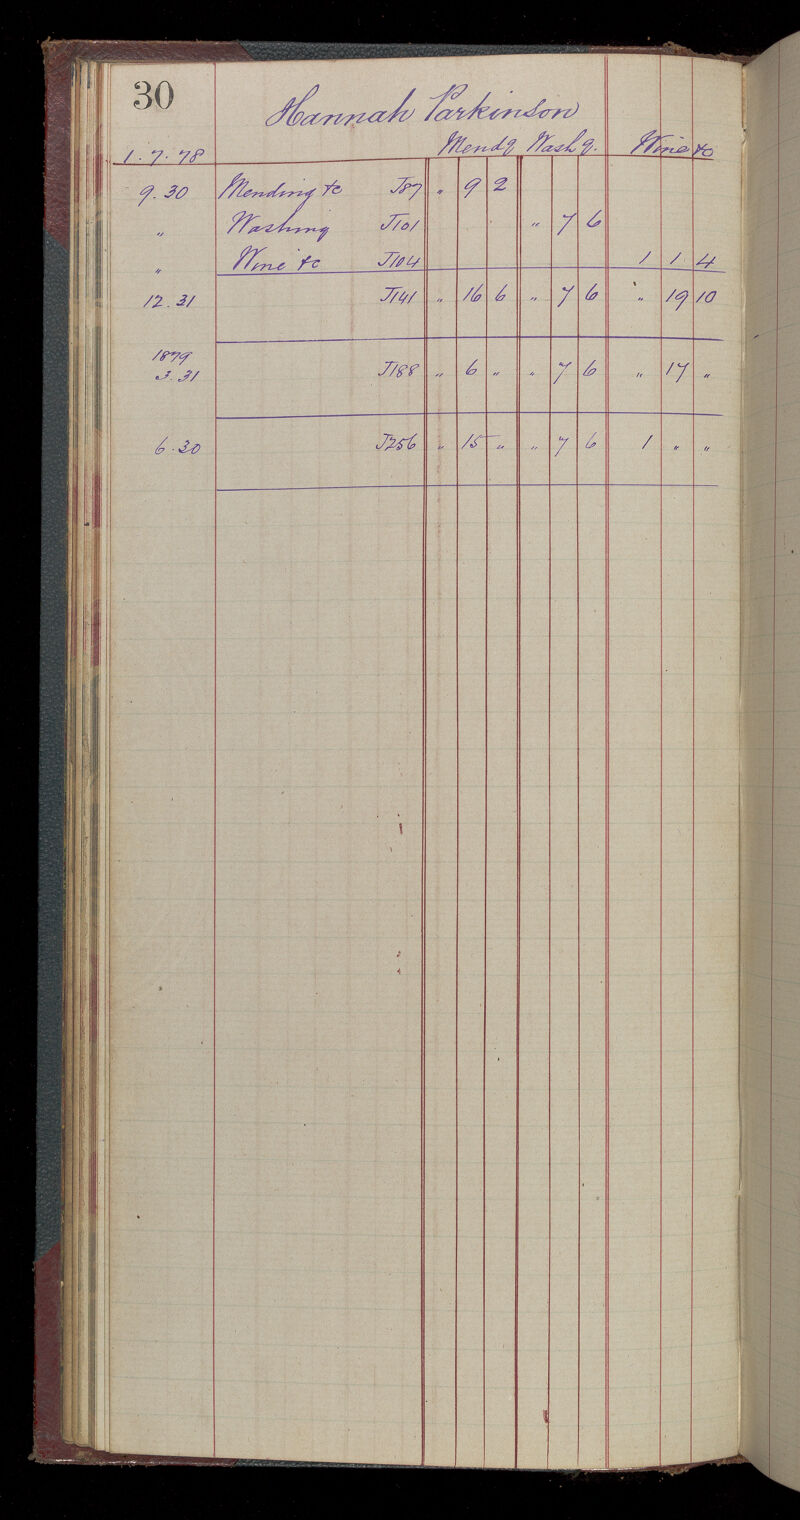 30
Hannah Parkinson
1.7.78 Mendg Washg. Wine &c
9.30 Mending &c J87 " 9 2
" Washing J101 " 7 6
" Wine &c J104 1 1 4
12.31 J141 " 16 6 " 7 6 " 19 10
1879
3.31 J188 " 6 " " 7 6 " 17 "
6.30 J256 " 15 " " 7 6 1 " "